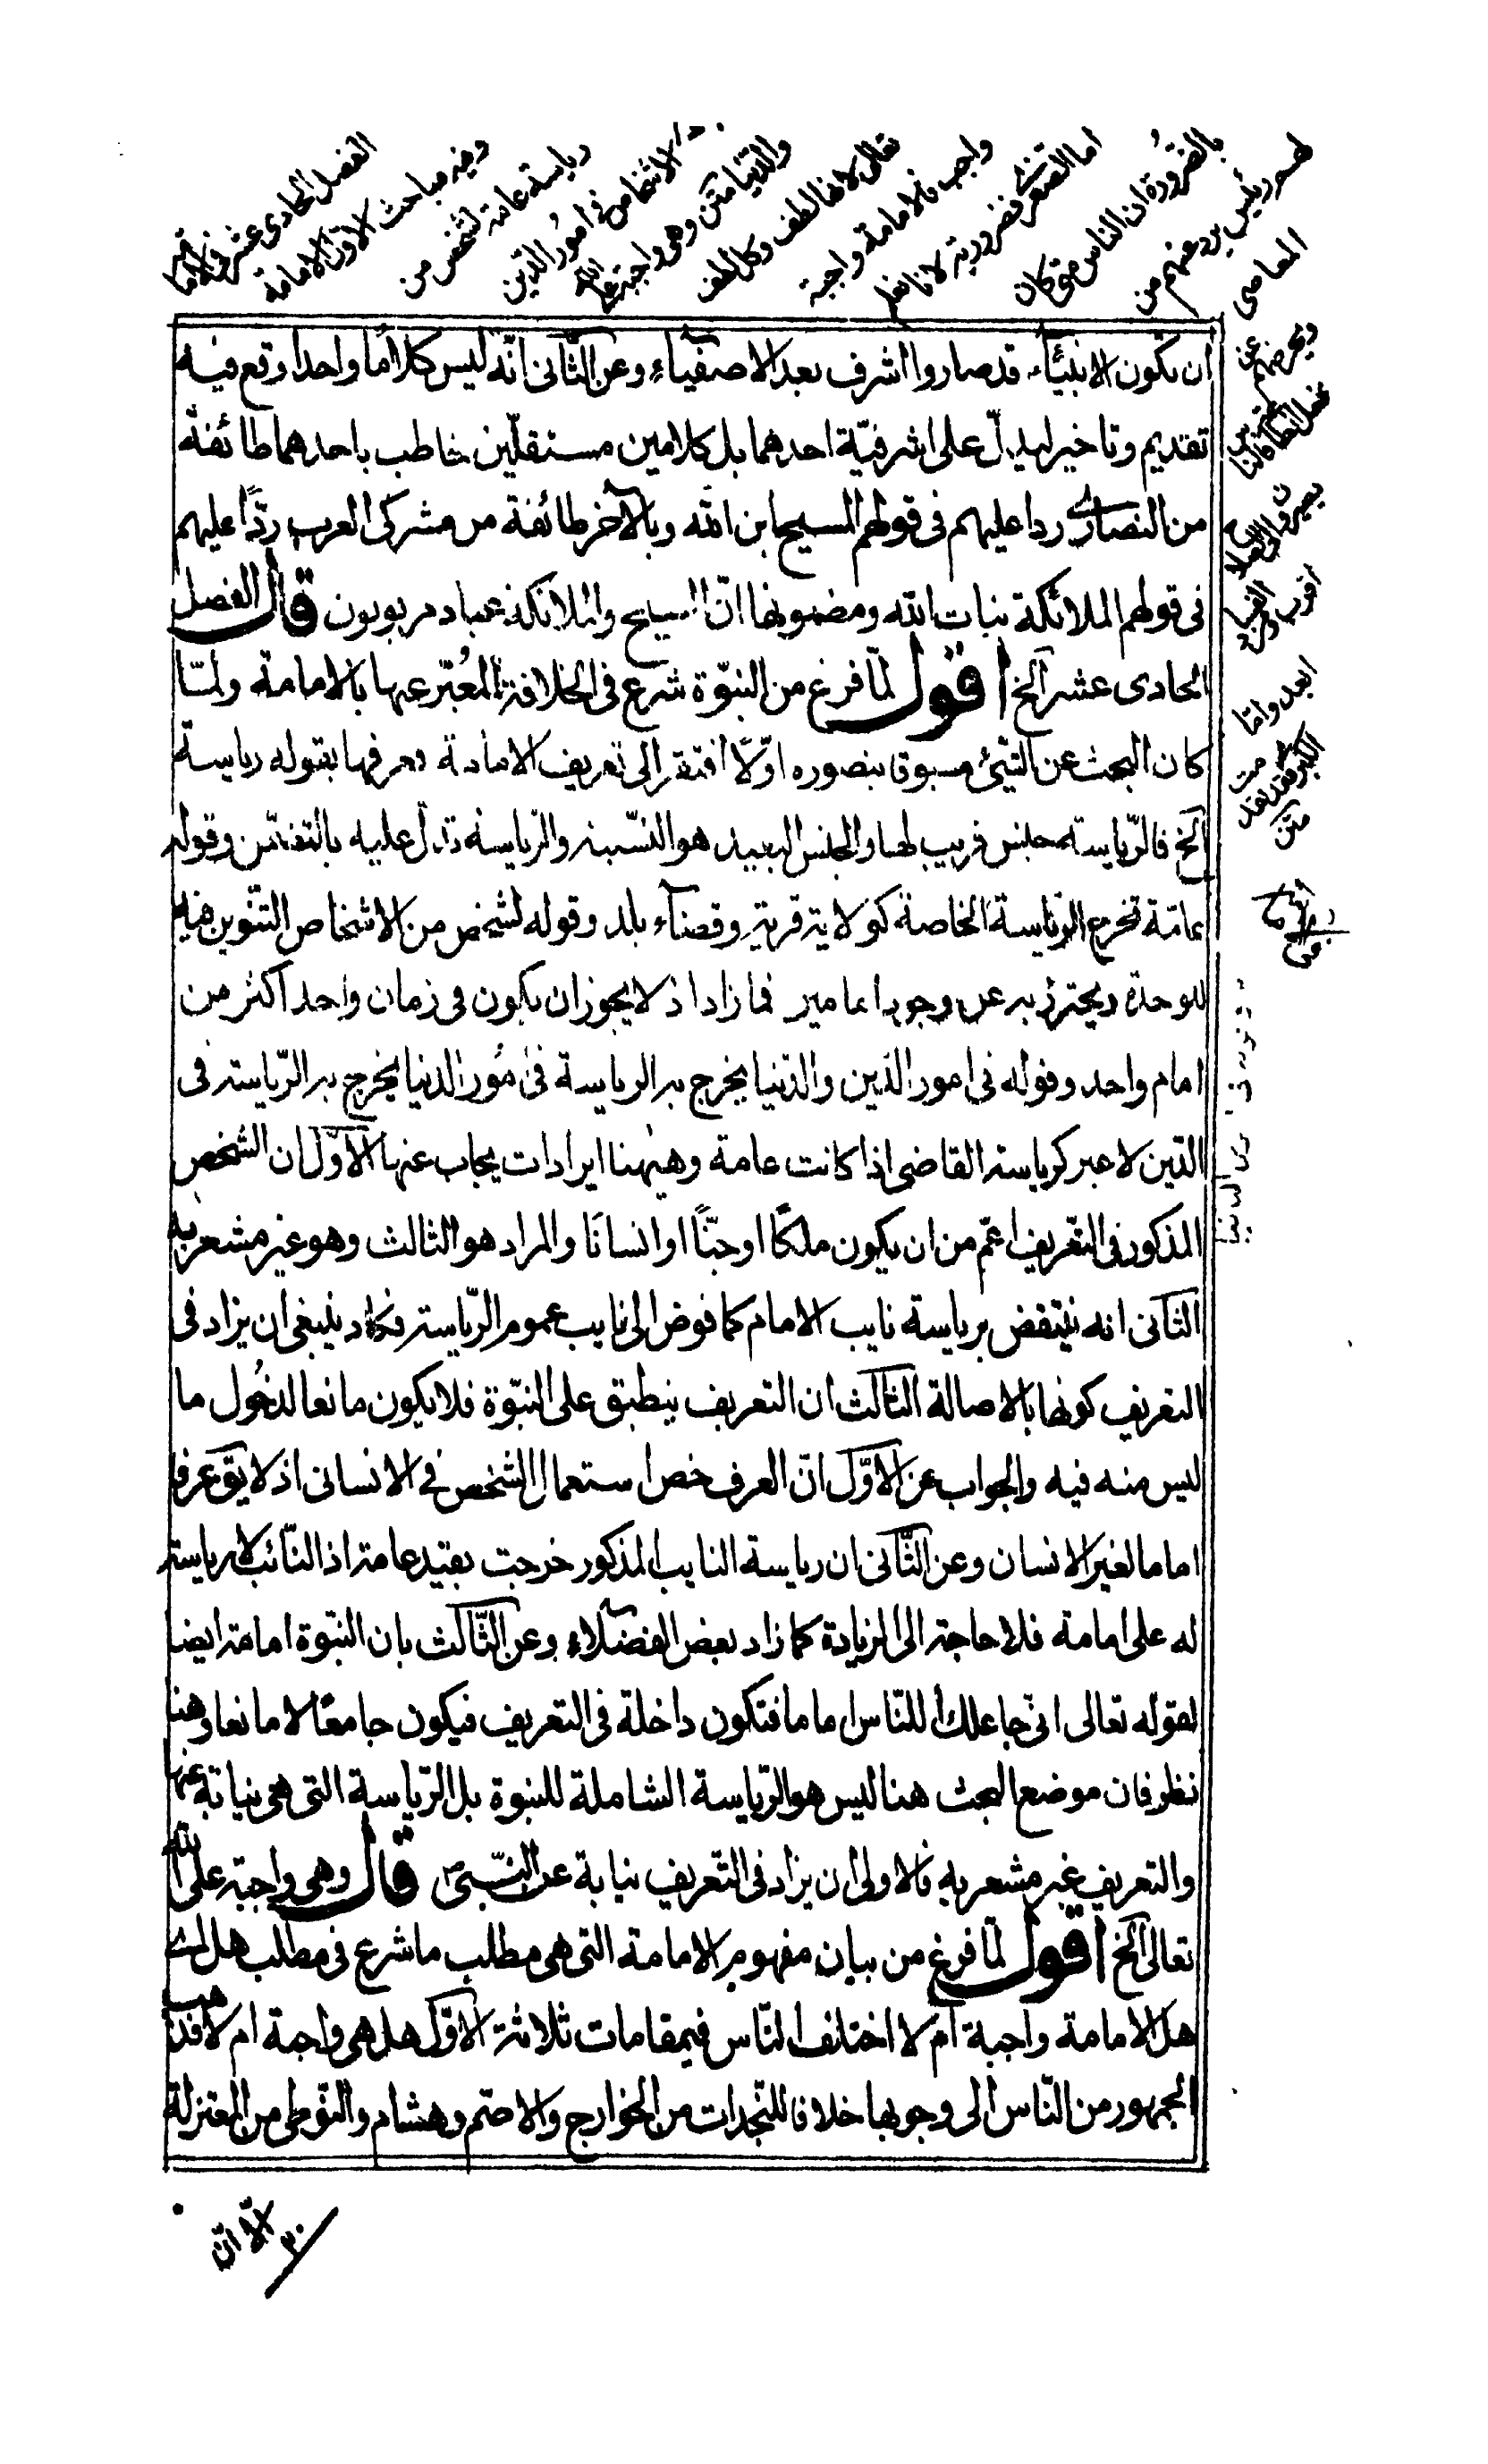 الفصل الحادى عشر فى الامامة
وفيه مباحث الاول الامامة
رياسة عامة لشخص من
الاشخاص فى امور الدين
والدنيا متن وهى واجبة على الله
تعالى لانها لطف وكل لطف
واجب فالامامة واجبة
اما الصغرى فضرورية لانا نعلم
بالضرورة ان الناس متى كان
لهم رئيس يردعهم من
المعاصى
ويحرضهم
الناس
اقرب
ابعد واما
الكبرى فقد
متن
ان تكون الانبيآء قد صاروا اشرف بعد الاصفيآء وعن الثانى انّه ليس كلاما واحدا وقع فيه
تقديم وتاخير ليدلّ على اشرفيّة احدهما بل كلامين مستقلّين خاطب باحدهما طائفة
من النصارى ردا عليهم فى قولهم المسيح ابن الله وبالآخر طائفة من مشركى العرب ردًّا عليهم
فى قولهم الملائكة بنات الله ومضمونها انّ المسيح والملائكة عباد مربوبون قال الفصل
الحادى عشر آلخ اقول لمّا فرغ من النبوّة شرع فى الخلافة المعبّر عنها بالامامة ولمّا
كان البحث عن الشئ مسبوقا بتصوره اوّلًا افتقر الى تعريف الامامة فعرفها بقوله رياسة
آلخ فالرّياسة جنس قريب لها والجنس البعيد هو النّسبة والرّياسة تدلّ عليه بالتضمّن وقوله
عامّة تخرج الرّياسة الخاصة كولاية قرية وقضآء بلد وقوله لشخص من الاشخاص التنوين فيه
للوحدة ويحترز به عن وجود امامين فما زاد اذ لا يجوز ان يكون فى زمان واحد اكثر من
امام واحد وقوله فى امور الدّين والدّنيا يخرج به الرياسة فى امور الدنيا يخرج به الرّياسة فى
الدّين لا غير كرياسة القاضى اذا كانت عامة وهيهنا ايرادات يجاب عنها الاوّل ان الشخص
المذكور فى التّعريف اعمّ من ان يكون ملكًا او جنّيًا او انسانًا والمراد هو الثالث وهو غير مشعر به
الثانى انه ينتقض برياسة نايب الامام كما فوض الى نايب عموم الرّياسة فكاد ينبغى ان يزاد فى
التعريف كونها بالاصالة الثالث ان التعريف ينطبق على النبّوة فلا يكون مانعا لدخول ما
ليس منه فيه والجواب عن الاوّل انّ العرف خص استعمال الشخص فى الانسانى اذ لا يق عرفا
اماما لغير الانسان وعن الثّانى ان رياسة النايب المذكور خرجت بقيد عامة اذ النّائب لا رياسة
له على امامة فلا حاجة الى الزيادة كما زاد بعض الفضلاء وعن الثّالث بان النبّوة امامة ايضا
لقوله تعالى انى جاعلك للنّاس اماما فتكون داخلة فى التعريف فيكون جامعًا لا مانعا وهنا
نظر فان موضع البحث هنا ليس هو الرّياسة الشاملة للنبوة بل الرّياسة التى هى نيابة عنها
والتعريف غير مشعر به فالاولى ان يزاد فى التّعريف نيابة عن النّبىّ قال وهى واجبة على الله
تعالى آلخ اقول لمّا فرغ من بيان مفهوم الامامة التى هى مطلب ما شرع فى مطلب هل اى
هل الامامة واجبة ام لا اختلف النّاس فى مقامات ثلاثة الاوّل هل هى واجبة ام لا فذهب
الجمهور من النّاس الى وجوبها خلافا للنّجدات من الخوارج والاصمّ وهشام والفوطى من المعتزلة
الّا انّ